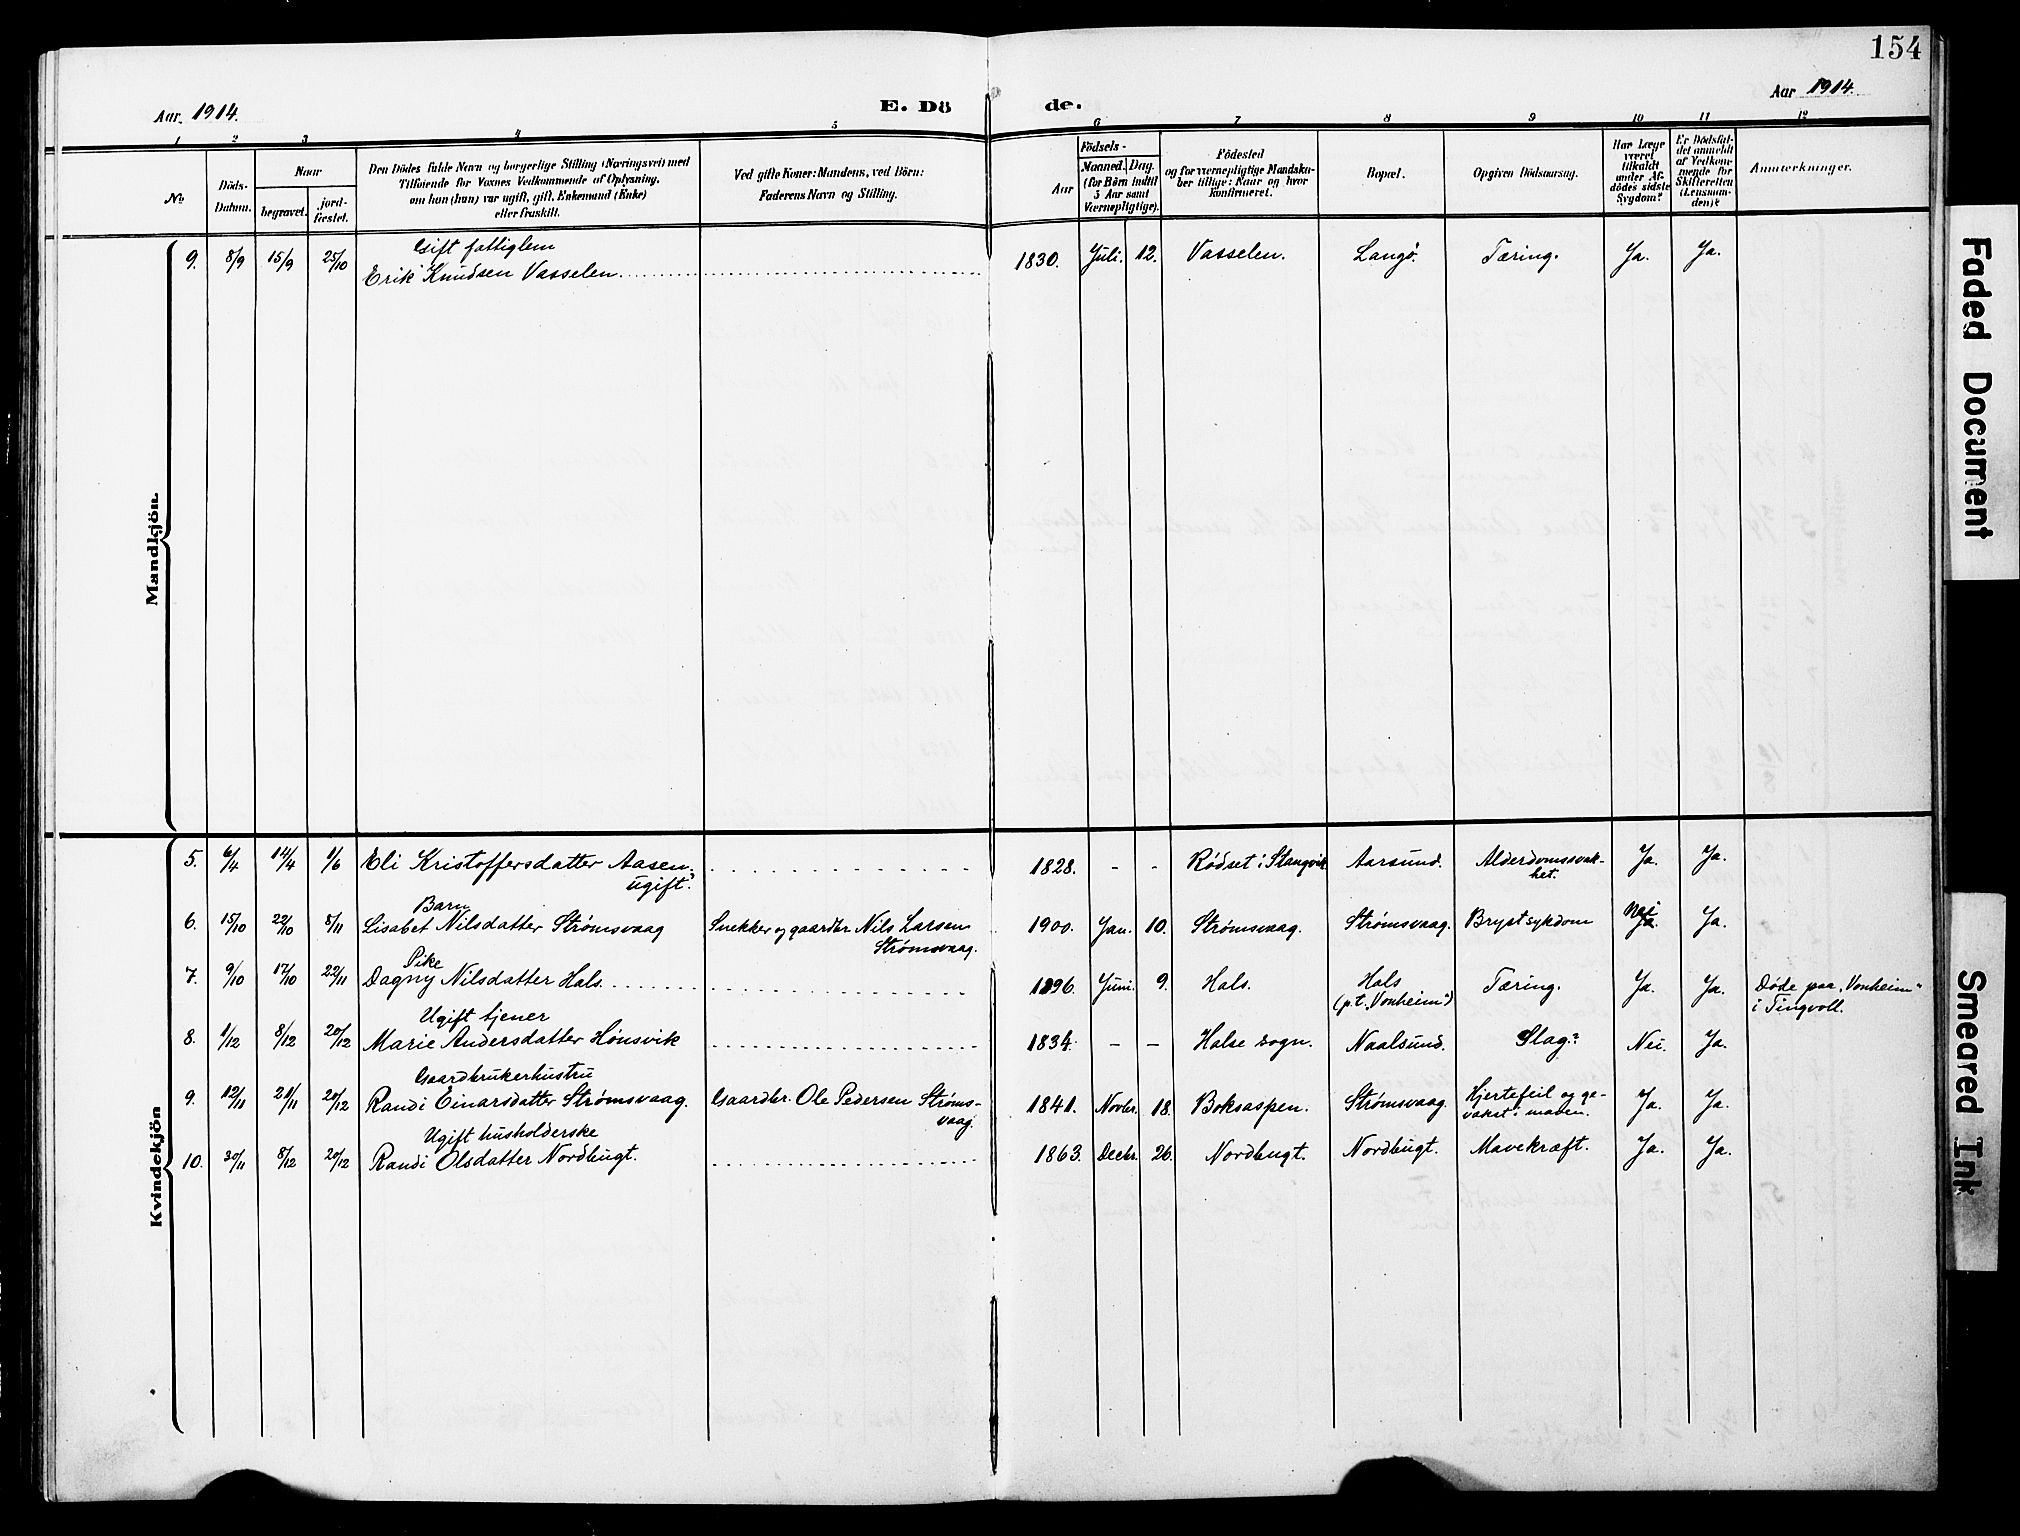 154
Aar 1914.
E. Dö de.
Aar 1914.
1 2 3 4 5 6 7 8 9 10 11 12
No
Döds-
Datum.
Naar
begravet.
jord-
fæstet.
Den Dödes fulde Navn og borgerlige Stilling (Næringsvei) med
Tilföiende for Voxnes Vedkommende af Oplysning,
om han (hun) var ugift, gift, Enkemand (Enke)
eller fraskilt.
Ved gifte Koner: Mandens, ved Börn:
Faderens Navn og Stilling.
Födsels-
Aar
Maaned. Dag.
(for Børn indtil
5 Aar samt
Værnepligtige).
Födested
og for værnepligtige Mandska-
ber tillige: Naar og hvor
konfirmeret.
Bopæl.
Opgiven Dödsaarsag.
Har Læge
været
tilkaldt
under Af-
dödes sidste
Sygdom?
Er Dödsfal-
det anmeldt
af Vedkom-
mende for
Skifteretten
(Lensman-
den)?
Anmærkninger.
Mandkjön.
Gift fattiglem
9. 8/9 15/9 25/10 Erik Knudsen Vasselen. 1830. Juli. 12. Vasselen. Langø. Tæring. Ja. Ja.
Kvindekjön
5. 6/4 14/4 1/6 Eli Kristoffersdatter Aasen, 1828. - - Rødset i Stangvik Aarsund. Alderdomssvak- Ja. Ja.
ugift. het.
Barn
6. 15/10 22/10 8/11 Lisabet Nilsdatter Strømsvaag Snekker og gaardbr. Nils Larsen 1900. Jan. 10. Strømsvaag. Strømsvaag. Brystsykdom Nei Ja. Ja.
Strømsvaag.
Pike
7. 9/10 17/10 22/11 Dagny Nilsdatter Hals. 1896. Juni. 9. Hals. Hals Tæring. Ja. Ja. Døde paa „Vonheim“
(p.t. „Vonheim“) i Tingvoll.
Ugift tjener
8. 1/12 8/12 20/12 Marie Andersdatter Hønsvik 1834. - - Halse sogn. Naalsund. Slag? Nei. Ja.
Gaardbrukerhustru
9. 12/11 21/11 20/12 Randi Einarsdatter Strømsvaag. Gaardbr. Ole Pedersen Strøms- 1841. Novbr. 18. Boksaspen. Strømsvaag. Hjertefeil og ge- Ja. Ja.
vaag. vækst i maven.
Ugift husholderske
10. 30/11 8/12 20/12 Randi Olsdatter Nordbugt. 1863. Decbr. 26. Nordbugt. Nordbugt. Mavekræft. Ja. Ja.
Faded Document
Smeared Ink